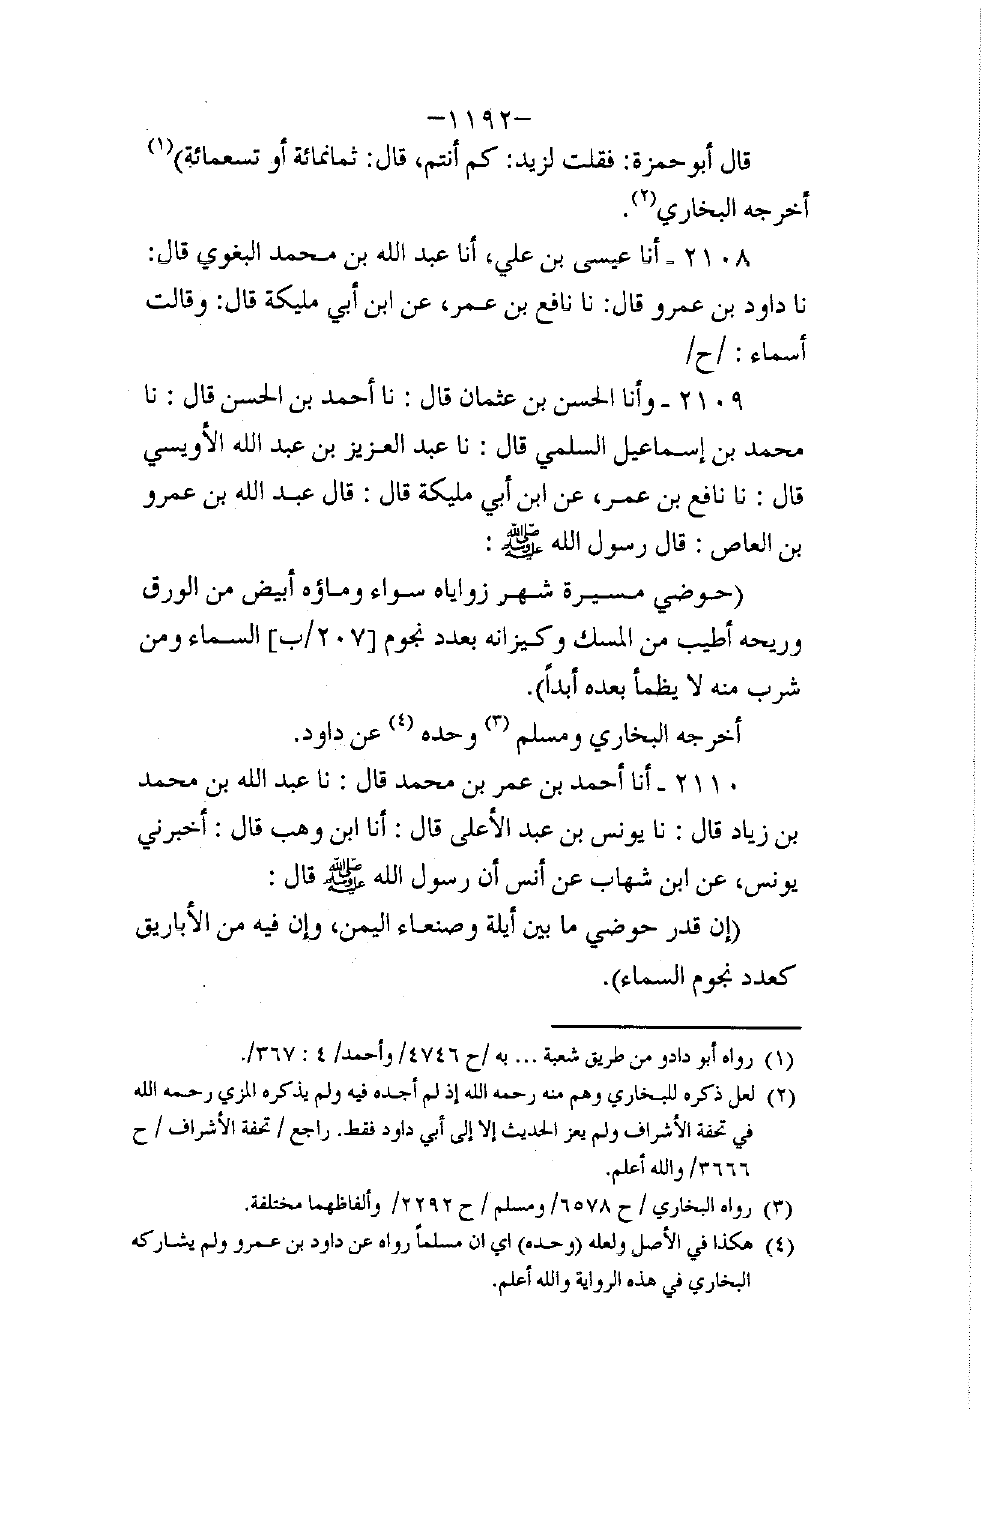 -١١٩٢-
قال أبو حمزة: فقلت لزيد: كم أنتم، قال: ثمانمائة أو تسعمائة)(١)
أخرجه البخاري(٢).
٢١٠٨ ـ أنا عيسى بن علي، أنا عبد الله بن محمد البغوي قال:
نا داود بن عمرو قال: نا نافع بن عمر، عن ابن أبي مليكة قال: وقالت
أسماء : /ح/
٢١٠٩ ـ وأنا الحسن بن عثمان قال : نا أحمد بن الحسن قال : نا
محمد بن إسماعيل السلمي قال : نا عبد العزيز بن عبد الله الأويسي
قال : نا نافع بن عمر، عن ابن أبي مليكة قال : قال عبد الله بن عمرو
بن العاص : قال رسول الله ﷺ :
(حوضي مسيرة شهر زواياه سواء وماؤه أبيض من الورق
وريحه أطيب من المسك وكيزانه بعدد نجوم [٢٠٧/ب] السماء ومن
شرب منه لا يظمأ بعده أبداً).
أخرجه البخاري ومسلم (٣) وحده (٤) عن داود.
٢١١٠ ـ أنا أحمد بن عمر بن محمد قال : نا عبد الله بن محمد
بن زياد قال : نا يونس بن عبد الأعلى قال : أنا ابن وهب قال : أخبرني
يونس، عن ابن شهاب عن أنس أن رسول الله ﷺ قال :
(إن قدر حوضي ما بين أيلة وصنعاء اليمن، وإن فيه من الأباريق
كعدد نجوم السماء).
(١) رواه أبو دادو من طريق شعبة ... به /ح ٤٧٤٦/ وأحمد/ ٤ : ٣٦٧/.
(٢) لعل ذكره للبخاري وهم منه رحمه الله إذ لم أجده فيه ولم يذكره المزي رحمه الله
في تحفة الأشراف ولم يعز الحديث إلا إلى أبي داود فقط. راجع / تحفة الأشراف / ح
٣٦٦٦/ والله أعلم.
(٣) رواه البخاري / ح ٦٥٧٨/ ومسلم / ح ٢٢٩٢/ وألفاظهما مختلفة.
(٤) هكذا في الأصل ولعله (وحده) اي ان مسلماً رواه عن داود بن عمرو ولم يشاركه
البخاري في هذه الرواية والله أعلم.